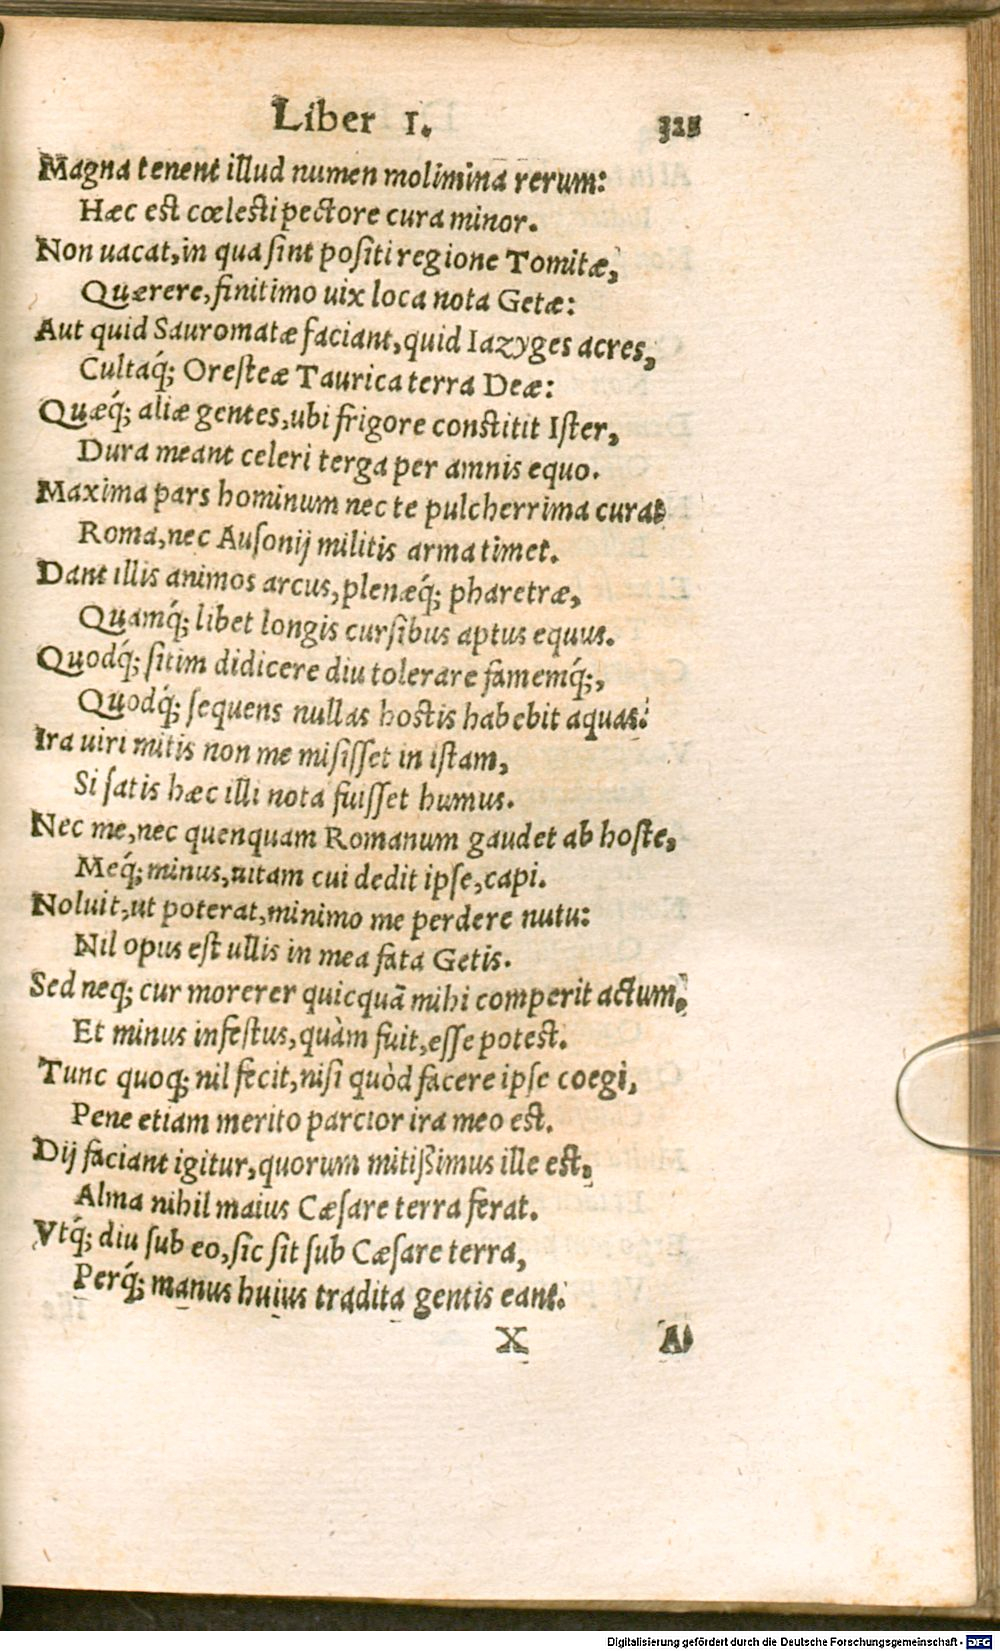 Liber 1. 321
Magna tenent illud numen molimina rerum:
Hæc est cœlesti pectore cura minor.
Non uacat, in qua sint positi regione Tomitæ,
Quærere, finitimo uix loca nota Getæ:
Aut quid Sauromatæ faciant, quid Iazyges acres,
Cultaq́; Oresteæ Taurica terra Deæ:
Quæq́; aliæ gentes, ubi frigore constitit Ister,
Dura meant celeri terga per amnis equo.
Maxima pars hominum nec te pulcherrima curat
Roma, nec Ausonij militis arma timet.
Dant illis animos arcus, plenæq́; pharetræ,
Quamq́; libet longis cursibus aptus equus.
Quodq́; sitim didicere diu tolerare famemq́;,
Quodq́; sequens nullas hostis habebit aquas:
Ira uiri mitis non me misisset in istam,
Si satis hæc illi nota fuisset humus.
Nec me, nec quenquam Romanum gaudet ab hoste,
Meq́; minus, uitam cui dedit ipse, capi.
Noluit, ut poterat, minimo me perdere nutu:
Nil opus est ullis in mea fata Getis.
Sed neq; cur morerer quicquā mihi comperit actum,
Et minus infestus, quàm fuit, esse potest.
Tunc quoq; nil fecit, nisi quòd facere ipse coegi,
Pene etiam merito parcior ira meo est.
Dij faciant igitur, quorum mitißimus ille est,
Alma nihil maius Cæsare terra ferat.
Vtq́; diu sub eo, sic sit sub Cæsare terra,
Perq́; manus huius tradita gentis eant.
X A
Digitalisierung gefördert durch die Deutsche Forschungsgemeinschaft - DFG